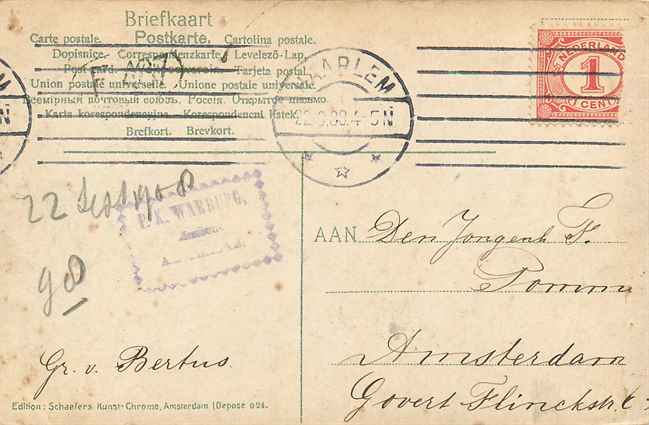 Briefkaart
Postkarte.
Carte postale. Cartolina postale.
Dopisnice. Correspondenzkarte. Levelező-Lap.
Post card. Tarjeta postal.
Union postale universelle. Unione postale universale.
Всемірный почтовый союзъ. Россія. Открытое письмо.
Karta korespondencyjna. Korespondencni listek.
Brefkort. Brevkort.
HAARLEM
22.9.08.4-5N
NEDERLAND
1
CENT
22 Sept 1908
P. K. WARBURG,
98
AAN Den Jongenh F.
Pomm
Amsterdam
Govert Flinckstr
Gr. v. Bertus.
Edition: Schaefers Kunst-Chromo, Amsterdam (Deposé 024.